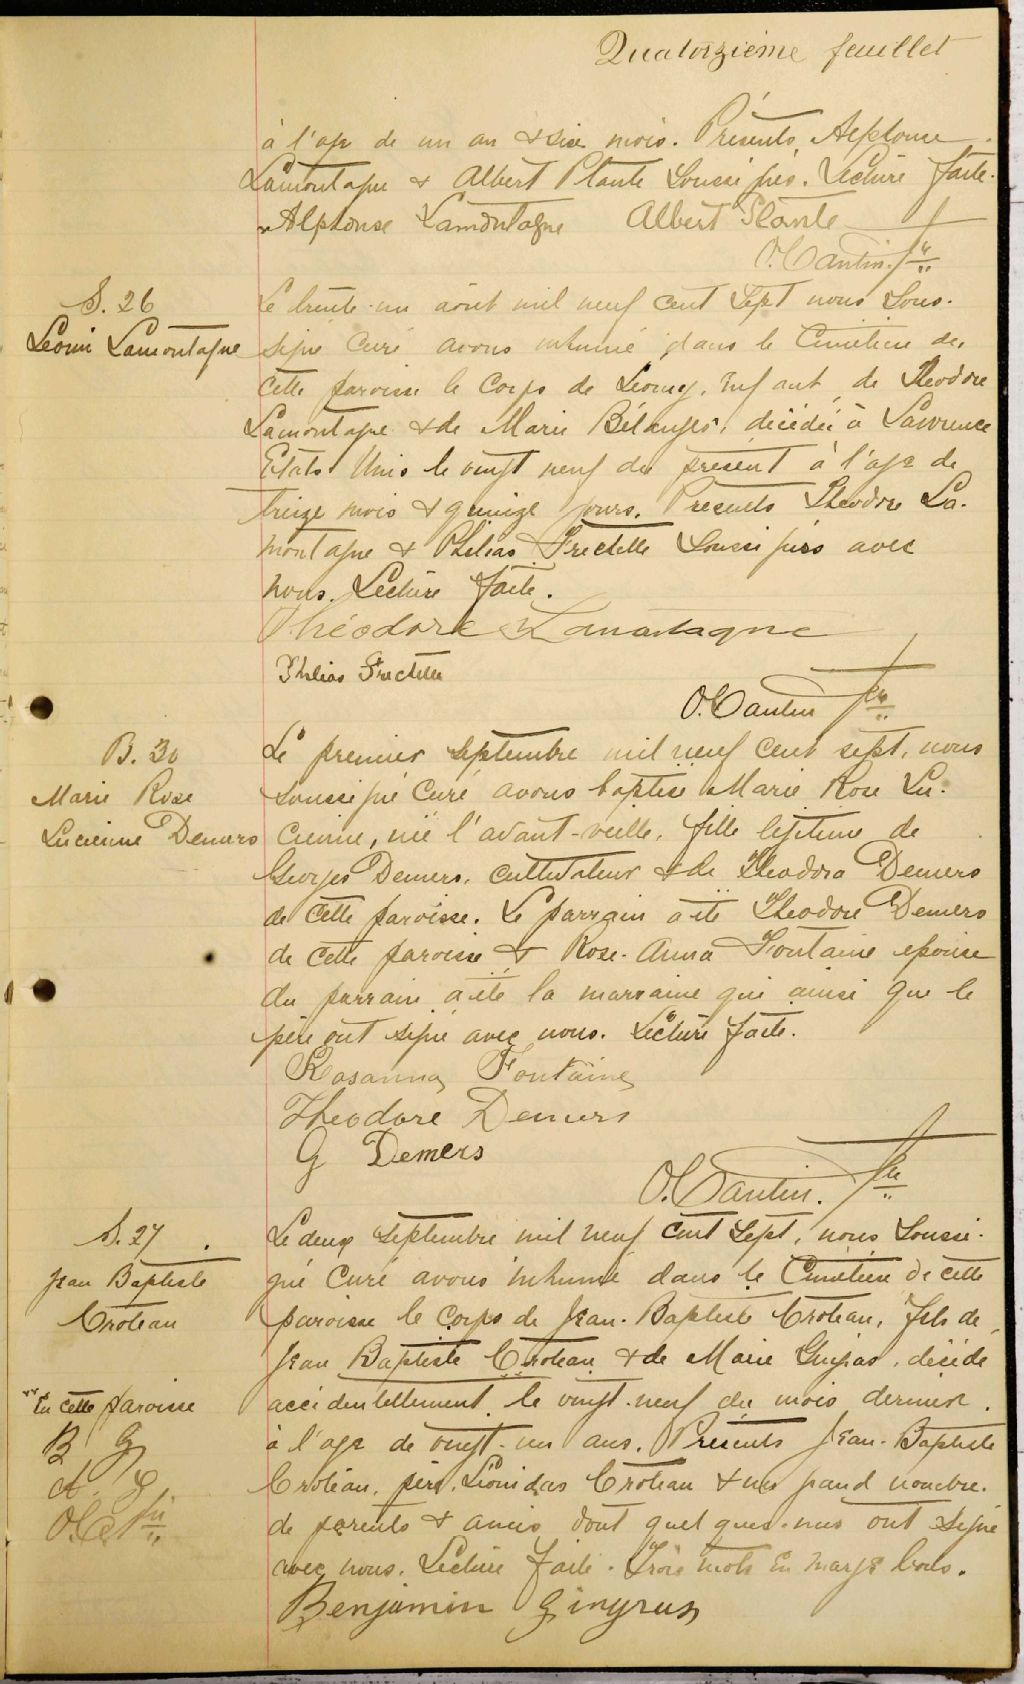 Quatorzième feuillet
à l'age de un an & six mois. Présents, Alphonse
Lamontagne & Albert Plante Soussignés. Lecture faite.
Alphonse Lamontagne Albert Plante
O. Cantin. Ptre
S. 26
Léonie Lamontagne
Le trente-un août mil neuf cent Sept nous Sous-
signé Curé avons inhumé dans le Cimetière de
cette paroisse le Corps de Enfant de Théodore
Lamontagne & de Marie Bélanger, décédée à Lawrence
Etats Unis le vingt neuf du présent à l'age de
treize mois & quinze jours. Présents Théodore La-
montagne & Philias Frechette Soussignés avec
nous. Lecture faite.
Théodore Lamontagne
Philias Frechette
O. Cantin Ptre
B. 30
Marie Rose
Lucienne Demers
Le premier Septembre mil neuf cent sept, nous
soussigné Curé avons baptisé Marie Rose Lu-
cienne, née l'avant-veille, fille légitime de
Georges Demers, cultivateur & de Théodora Demers
de cette paroisse. Le parrain a été Théodore Demers
de cette paroisse & Rose-Anna Fontaine épouse
du parrain a été la marraine qui ainsi que le
père ont signé avec nous. Lecture faite.
Rosanna Fontaine
Theodore Demers
G Demers
O. Cantin. Ptre
S. 27
Jean Baptiste
Croteau
Le deux Septembre mil neuf cent Sept, nous Soussi-
gné Curé avons inhumé dans le Cimetière de cette
paroisse le corps de Jean-Baptiste Croteau, fils de
Jean Baptiste Croteau & de Marie Gingras, décédé
accidentellement le vingt-neuf du mois dernier,
en cette paroisse
B G
O C Ptre
à l'age de vingt-un ans. Présents Jean-Baptiste
Croteau, père, Léonidas Croteau & un grand nombre
de parents & amis dont quelques-uns ont signé
avec nous. Lecture faite. Trois mots en marge bons.
Benjamin Gingras